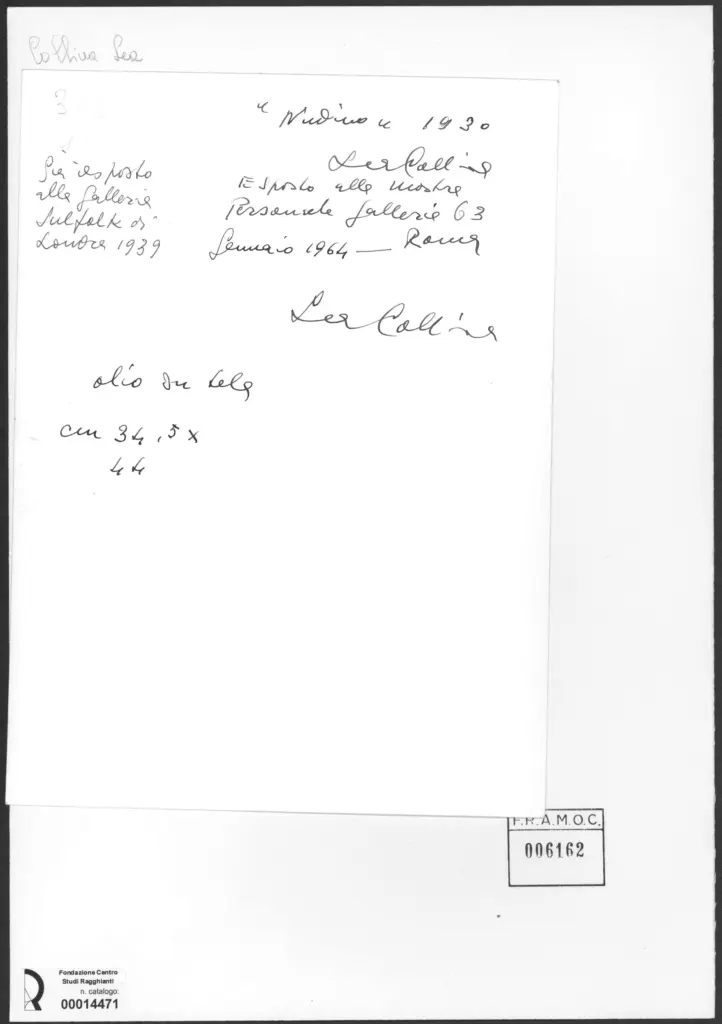 Collina Lea
3
" Nudino " 1930
Lea Collina
Già esposto
alla Galleria
Sulfolk di
Londra 1939
Esposto alla mostra
Personale Galleria 63
Gennaio 1964 — Roma
Lea Collina
olio su tela
cm 34,5 x
44
F.R.A.M.O.C.
006162
Fondazione Centro
Studi Ragghianti
n. catalogo:
00014471